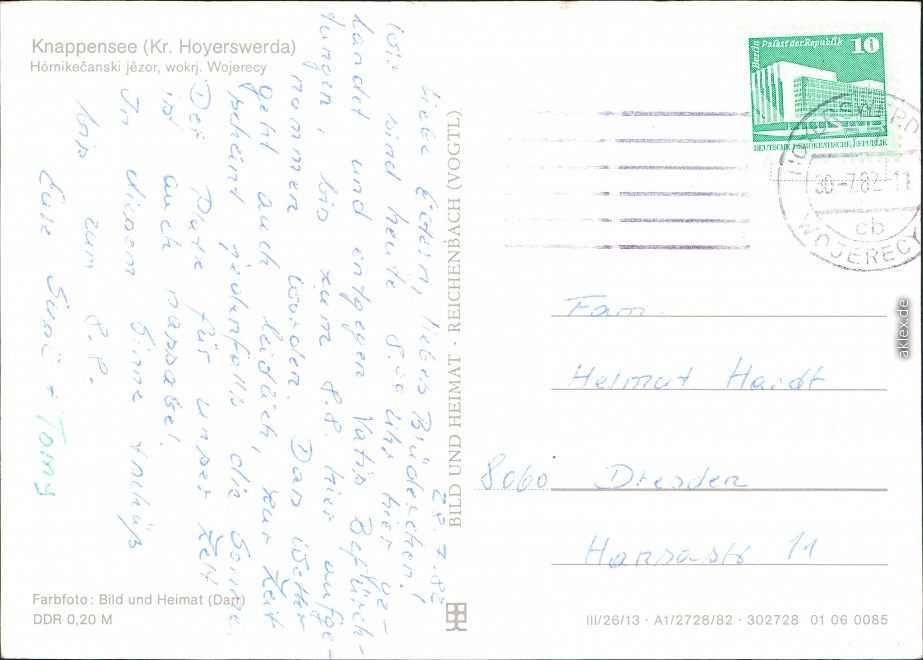 Knappensee (Kr. Hoyerswerda)
Hórnikečanski jězor, wokrj. Wojerecy
28.7.82
Liebe Eltern, liebes Brüderchen!
Wir sind heute 8.00 Uhr hier ge-
landet und entgegen Vatis Befürch-
tungen, bis zum 8.8. hier aufge-
nommen worden. Das Wetter
geht auch leidlich, zur Zeit
scheint jedenfalls die Sonne.
Der Platz für unser Zelt
ist auch passabel.
In diesem Sinne tschüß
bis zum 8.8.
Eure Susi + Tomy
BILD UND HEIMAT · REICHENBACH (VOGTL)
Berlin Palast der Republik 10
DEUTSCHE DEMOKRATISCHE REPUBLIK
HOYERSWERD
30-7.82-11
cb
WOJERECY
Fam.
Helmut Haidt
8060 Dresden
Hansastr. 11
Farbfoto: Bild und Heimat (Darr)
DDR 0,20 M
III/26/13 · A1/2728/82 · 302728 01 06 0085
aklex.de